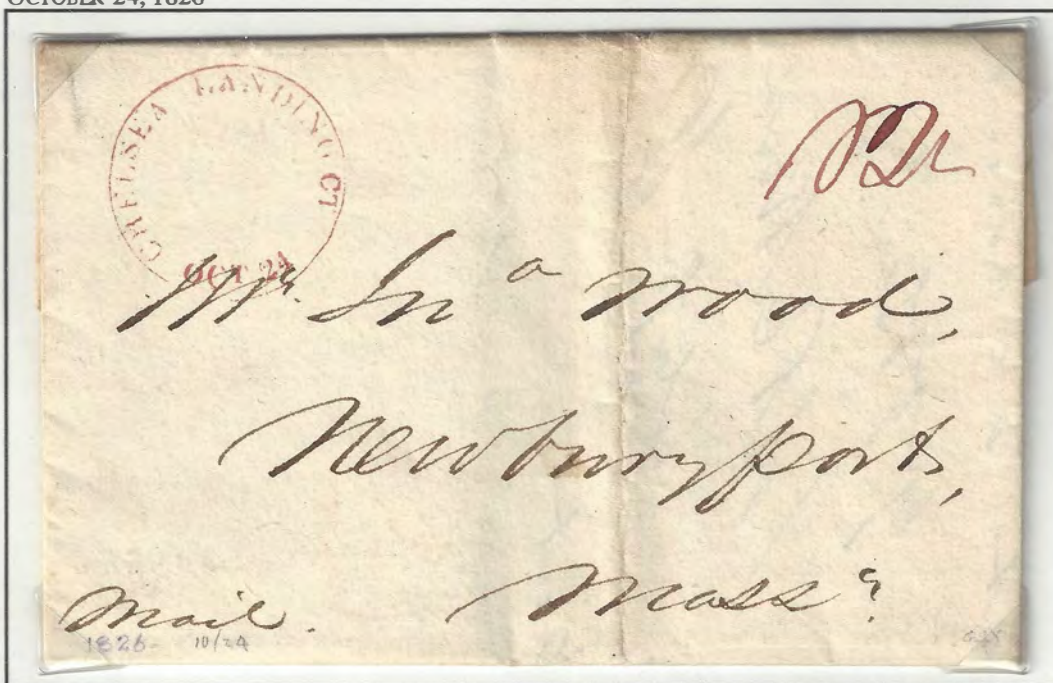 OCTOBER 24, 1826
CHELSEA LANDING CT
OCT 24
Mr. Jnº Wood,
Newburyport,
Massª
Mail.
1826- 10/24